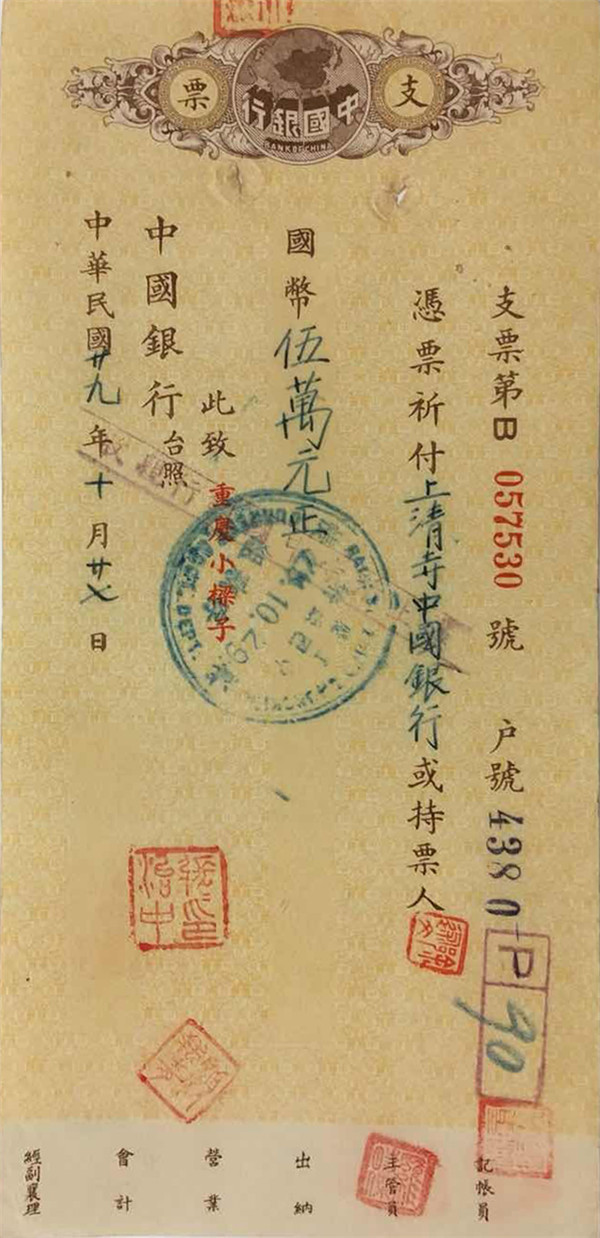 支票
中國銀行
BANK OF CHINA
支票第B 057530 號 户號 4380
憑票祈付上清寺中國銀行或持票人
國幣伍萬元正
此致 重慶小樑子
中國銀行台照
中華民國廿九年十月廿 日
10.29
P
90
記帳員
主管員
出納
營業
會計
經副襄理